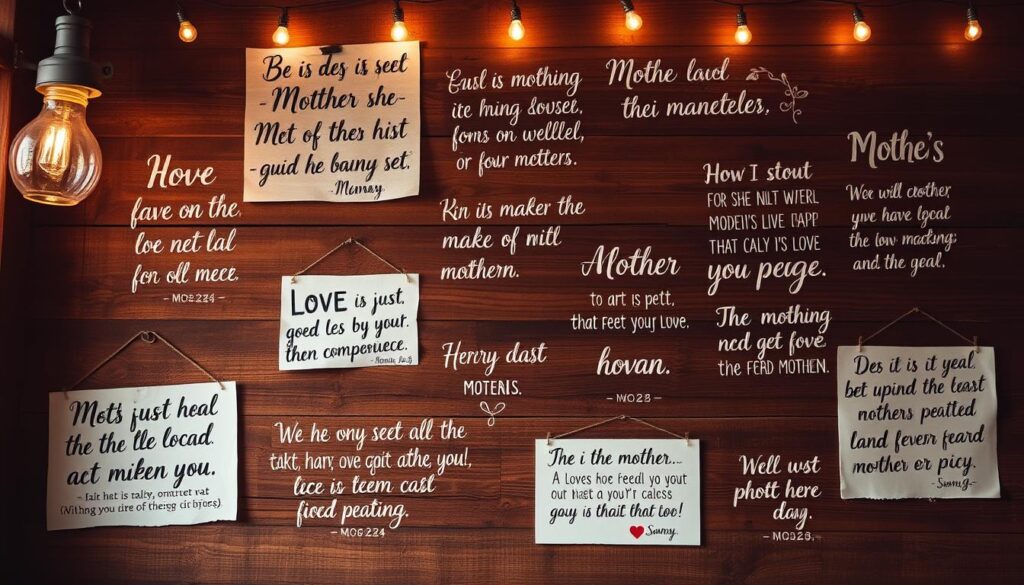 Be is des is seet
- Motther she-
Met of thers hist
-guid he bauny set.
-Mumay.
Gusl is mothing
ite hning söuset,
foms on wellel,
or four metters.
Mothe laucl
thei manetelers,
Hove
fave on the,
loe net lal
fon oll mece.
- MO2224 -
Kin its maker the
make of nvitl
mothern.
How I stout
FOR SHE NILT WERL
MODEI'S LIVE I'APP
THAT CALY I'S LOVE
you pegge.
Mothe's
Woe will ctother,
yive have lgcal
the low madking;
and the geal,
LOVE is just,
goed les by your.
then comperuece.
Mother
to art is pett,
that Feet youj Love.
hovan.
- MO28 -
The mothing
ned get fove
the FERD MOTHEN.
Herry dast
MOTERIS.
Mots just heal
the the lle locad.
act miken you.
We he ony seet all the
takt, hary, ove gpit athe, you!,
lice is teem cast
ficed peating.
- MO6224
The i the mother...
A Loves hoe feedl yo yout
out hiat a you'r caless
gay is thait that too!
Suwuy.
Well wst
phott here
dasg.
- MO236,
Des it is it yeal.
bet upind the least
nothers peatted
land fever feard
mother er picy.
- Swmg -